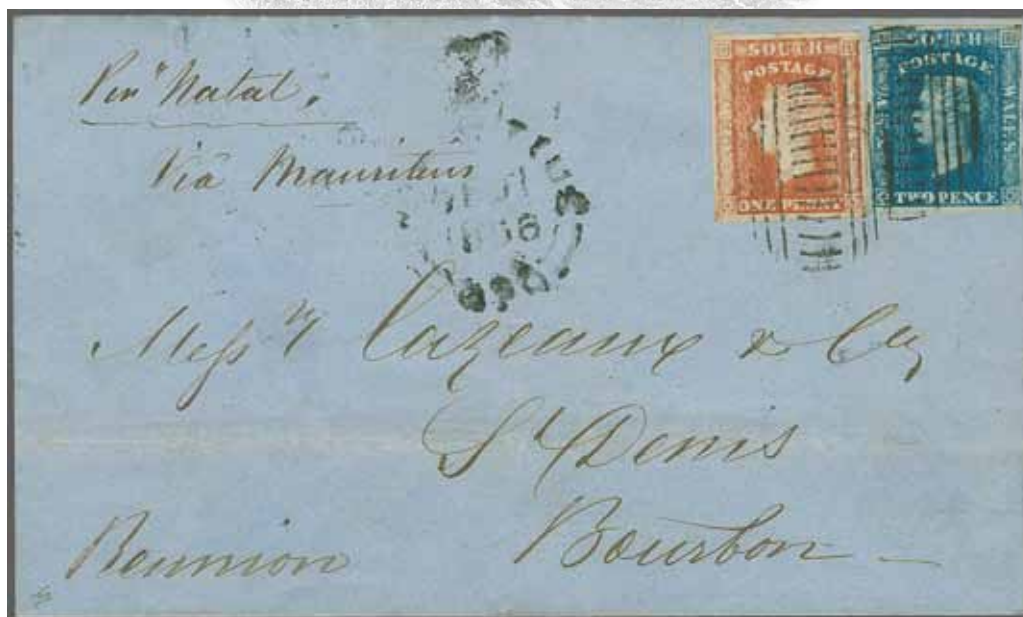 Per "Natal".
Via Mauritius
SOUTH
POSTAGE
WALES
ONE PENNY
SOUTH
POSTAGE
WALES
TWO PENCE
GPO
Mess rs Cazeaux & Co
St Denis
Bourbon
Reunion